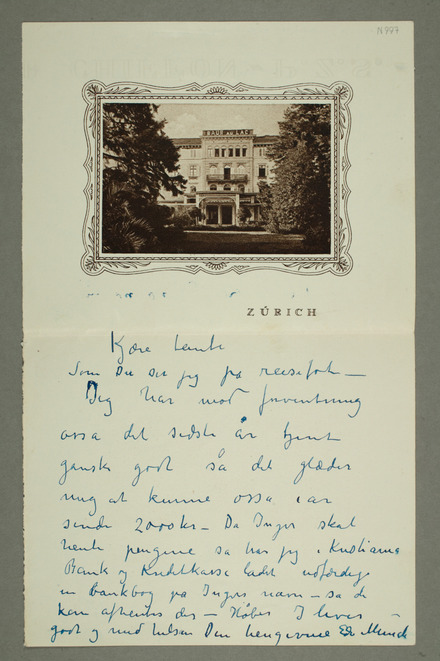 N 997
BAUR AU LAC
ZÚRICH
Kjære tante
Som Du ser jeg på reisefot –
Jeg har mod forventning
ossa det sidste år tjent
ganske godt så det glæder
mig at kunne ossa i år
sende 2000 kr – Da Inger skal
hente pengene så har jeg i Kristiania
Bank og Kreditkasse ladet udfærdige
en bankbog på Ingers navn – så de
kan afhentes der – Håber I lever –
godt og med hilsen Din hengivne E Munch